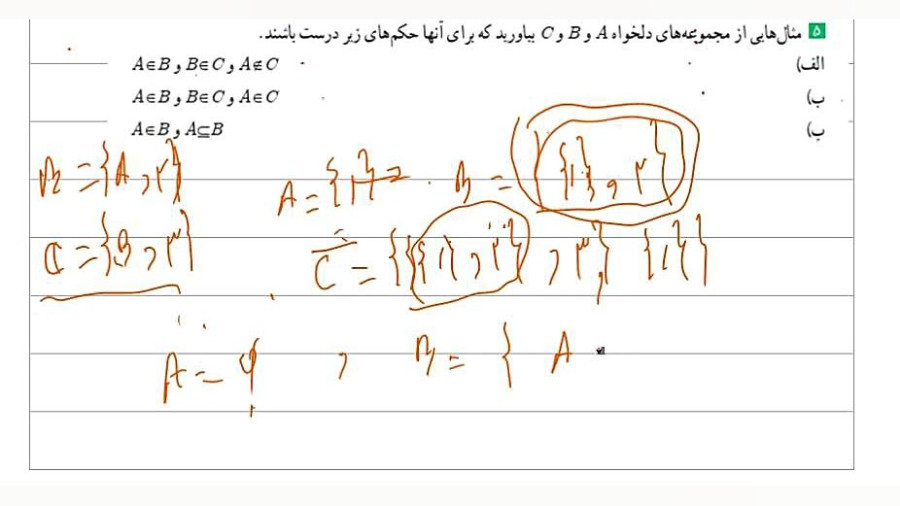 ۵ مثال‌هایی از مجموعه‌های دلخواه A و B و C بیاورید که برای آنها حکم‌های زیر درست باشند.
الف) A∈B و B∈C و A∉C
ب) A∈B و B∈C و A∈C
پ) A∈B و A⊆B
B = {A , ۲}
A = {۱} B = {{۱} , ۲}
C = {B , ۳}
C = {{{۱} , ۲} , ۳ , {۱}}
A = φ , B = { A